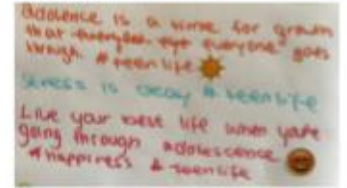 adolence is a time for growth
that everyone goes
through. #teenlife
stress is okay #teenlife
Live your best life when you're
going through adolescence
#happiness & teenlife